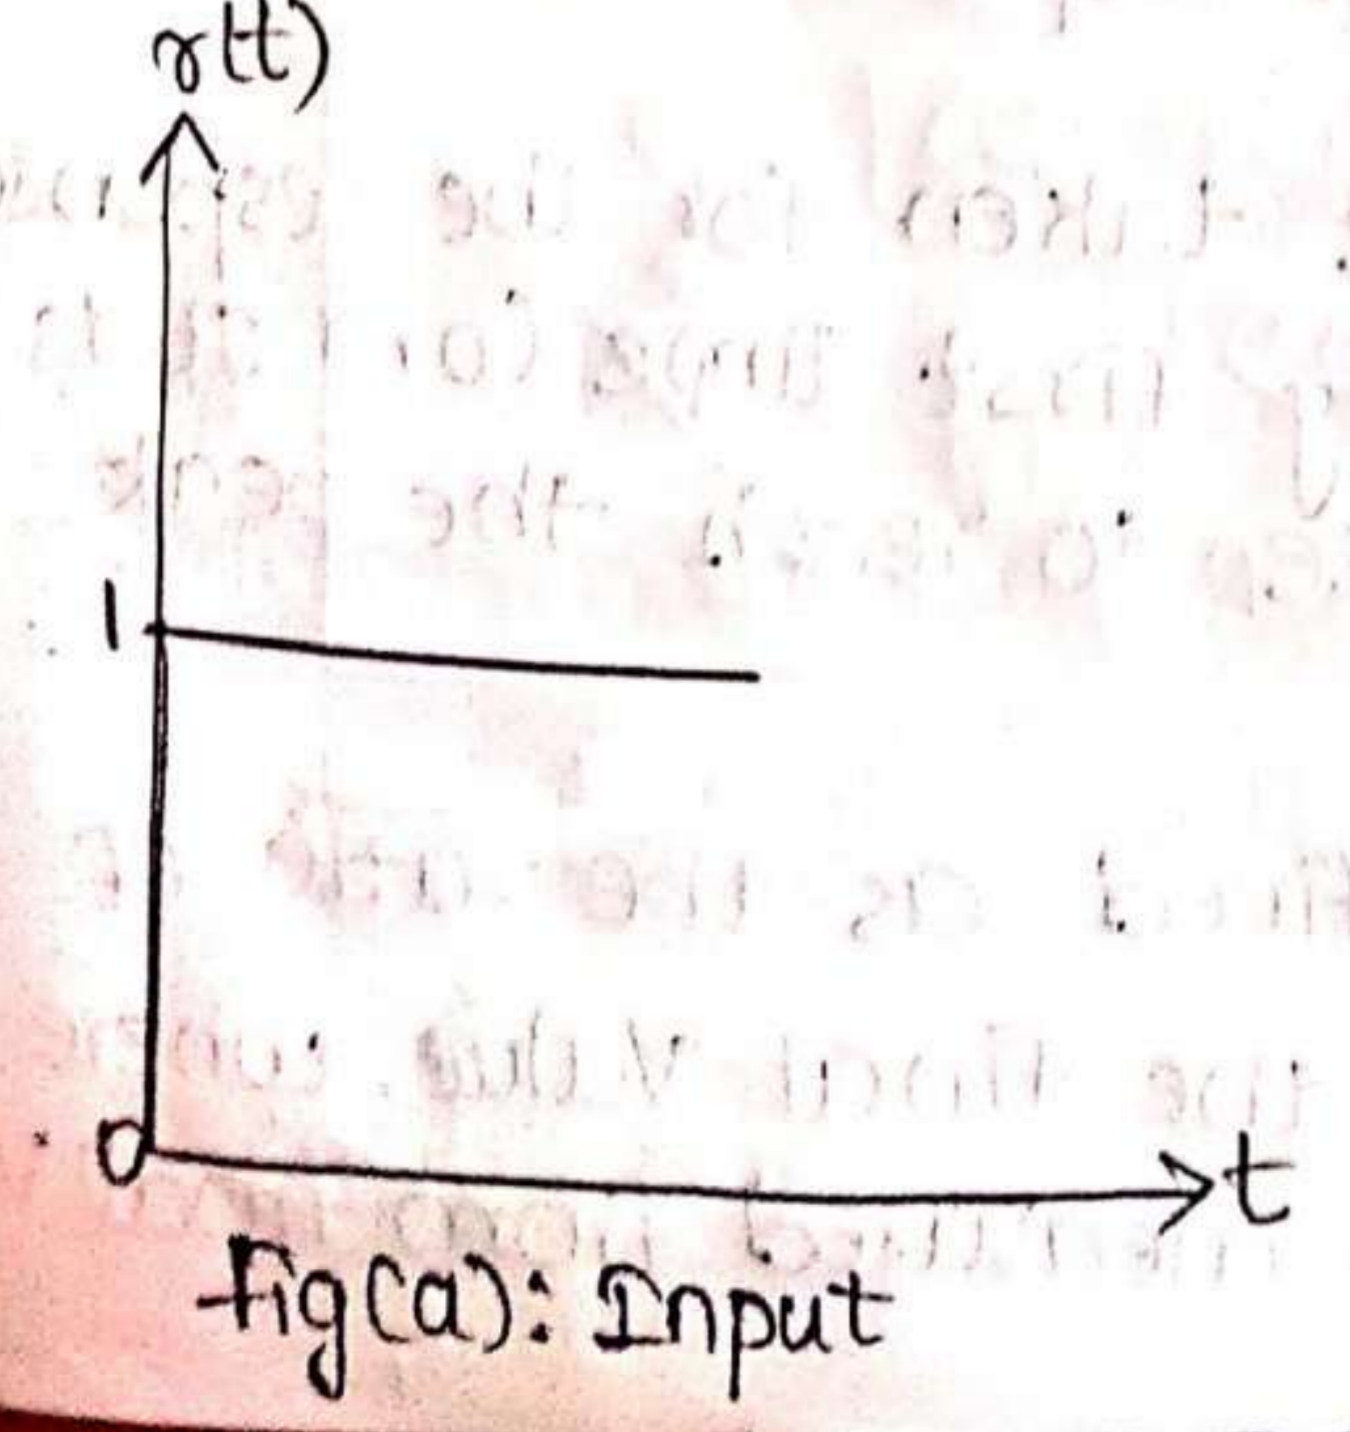 r(t)
1
0
t
fig(a): Input